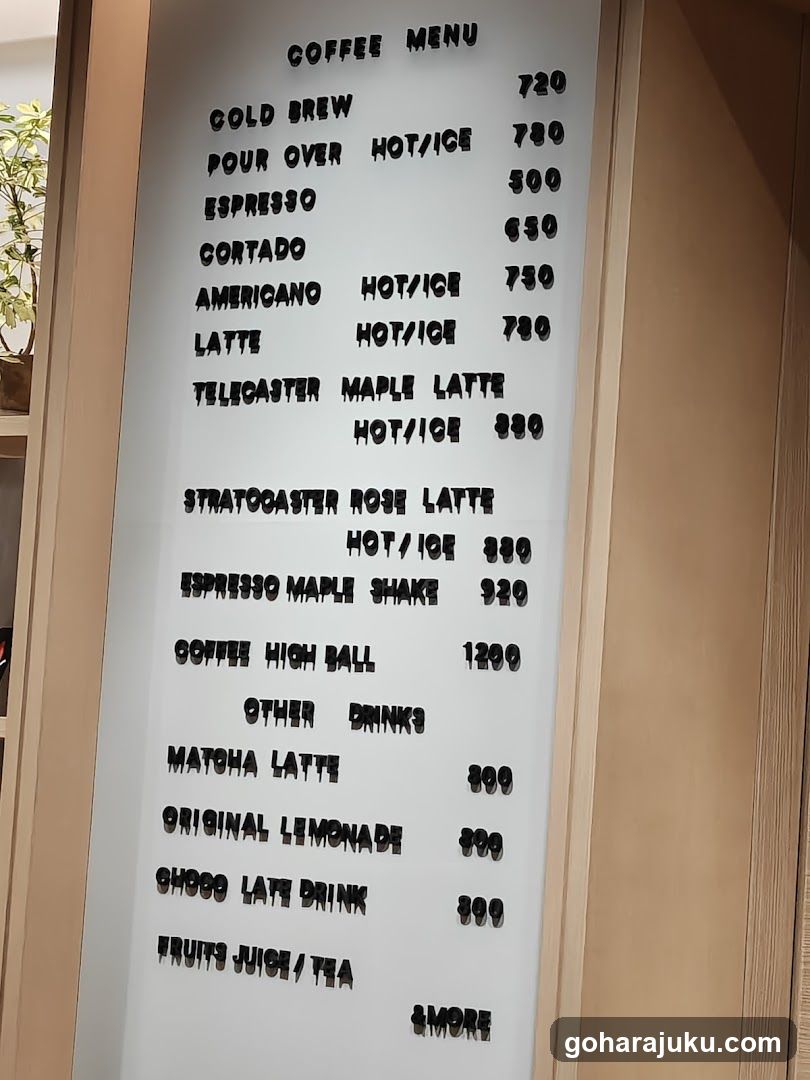 COFFEE MENU
COLD BREW 720
POUR OVER HOT/ICE 780
ESPRESSO 500
CORTADO 650
AMERICANO HOT/ICE 750
LATTE HOT/ICE 780
TELECASTER MAPLE LATTE
HOT/ICE 880
STRATOCASTER ROSE LATTE
HOT/ICE 880
ESPRESSO MAPLE SHAKE 920
COFFEE HIGH BALL 1200
OTHER DRINKS
MATCHA LATTE 800
ORIGINAL LEMONADE 800
CHOCO LATE DRINK 800
FRUITS JUICE / TEA
&MORE
goharajuku.com